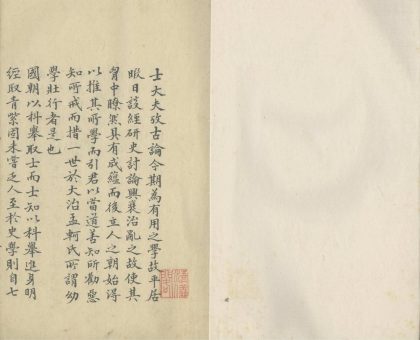 士大夫攷古論今期為有用之學故平居
暇日談經研史討論興衰治亂之故使其
胷中瞭然具有成蘊而後立人之朝始得
以推其所學而引君以當道善知所勸惡
知所戒而措一世於大治孟軻氏所謂幼
學壯行者是也
國朝以科舉取士而士知以科舉進身明
經取青紫固未嘗乏人至於史學則自七